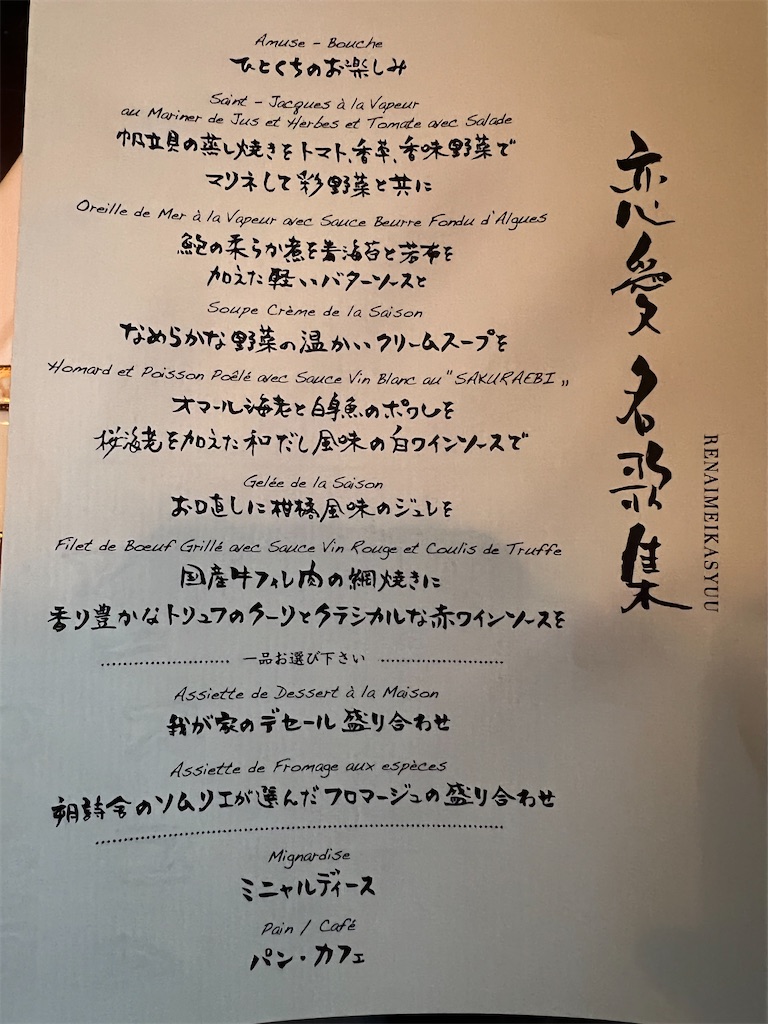 Amuse - Bouche
ひとくちのお楽しみ
Saint - Jacques à la Vapeur
au Mariner de Jus et Herbes et Tomate avec Salade
帆立貝の蒸し焼きをトマト、香草、香味野菜で
マリネして彩野菜と共に
Oreille de Mer à la Vapeur avec Sauce Beurre Fondu d'Algues
鮑の柔らか煮を岩海苔と若布を
加えた軽いバターソースと
Soupe Crème de la Saison
なめらかな野菜の温かいクリームスープを
Homard et Poisson Poêlé avec Sauce Vin Blanc au "SAKURAEBI„
オマール海老と白身魚のポワレを
桜海老を加えた和だし風味の白ワインソースで
Gelée de la Saison
お口直しに柑橘風味のジュレを
Filet de Boeuf Grillé avec Sauce Vin Rouge et Coulis de Truffe
国産牛フィレ肉の網焼きに
香り豊かなトリュフのクーリとクラシカルな赤ワインソースを
一品お選び下さい
Assiette de Dessert à la Maison
我が家のデセール盛り合わせ
Assiette de Fromage aux espèces
朔詩舎のソムリエが選んだフロマージュの盛り合わせ
Mignardise
ミニャルディース
Pain / Café
パン・カフェ
恋愛名歌集
RENAIMEIKASYUU